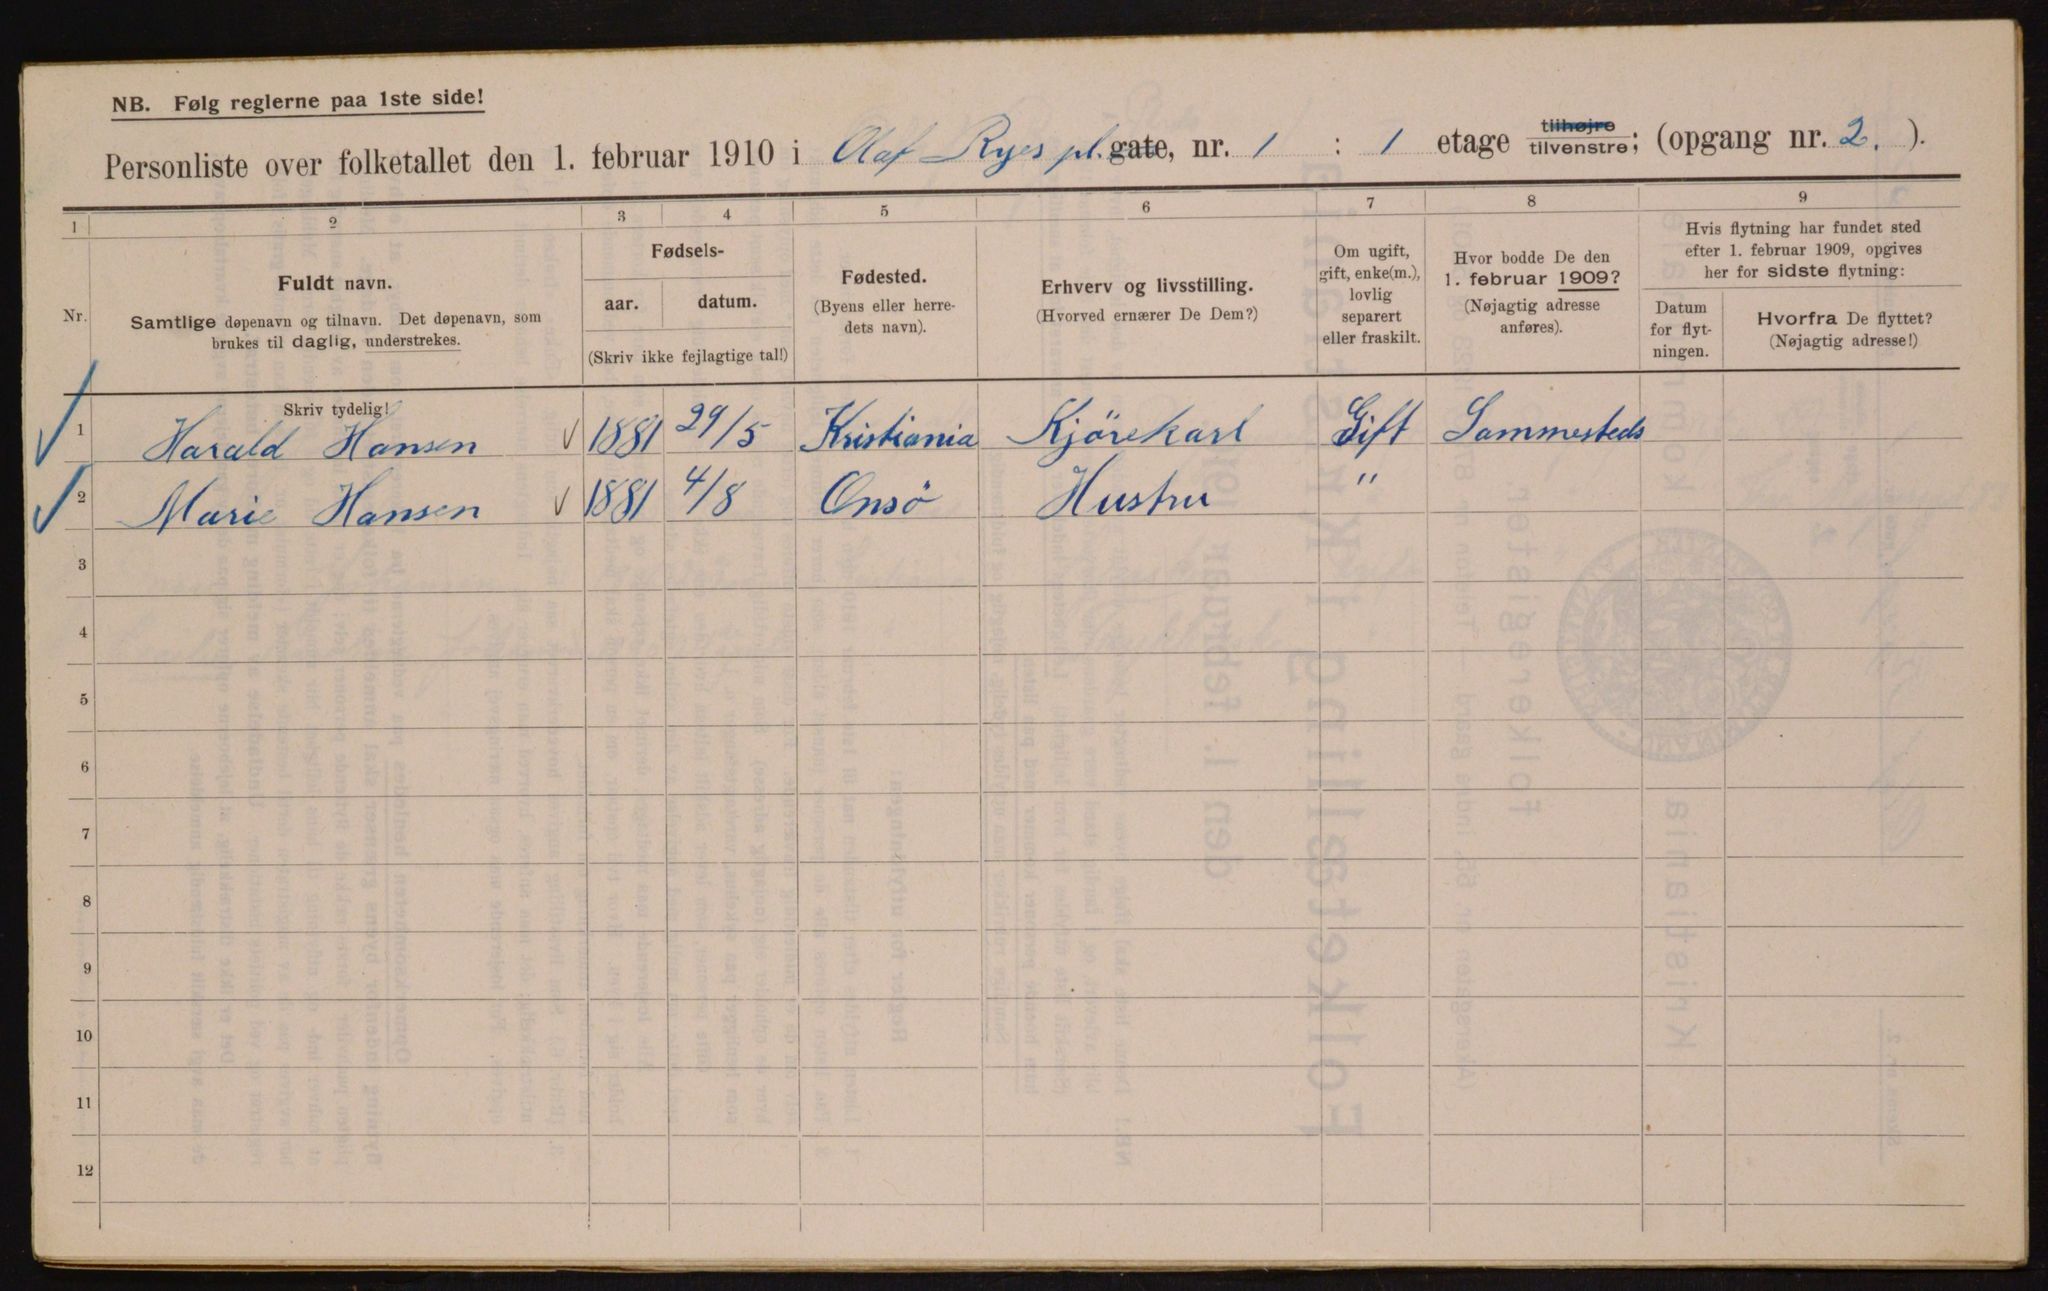 NB. Følg reglerne paa 1ste side!
Personliste over folketallet den 1. februar 1910 i Olaf Ryes pl. gate, nr. 1 : 1 etage tilhøjre tilvenstre; (opgang nr. 2. ).
1 2 3 4 5 6 7 8 9
Nr.
Fuldt navn.
Samtlige døpenavn og tilnavn. Det døpenavn, som
brukes til daglig, understrekes.
Fødsels-
aar. datum.
(Skriv ikke fejlagtige tal!)
Fødested.
(Byens eller herre-
dets navn).
Erhverv og livsstilling.
(Hvorved ernærer De Dem?)
Om ugift,
gift, enke(m.),
lovlig
separert
eller fraskilt.
Hvor bodde De den
1. februar 1909?
(Nøjagtig adresse
anføres).
Hvis flytning har fundet sted
efter 1. februar 1909, opgives
her for sidste flytning:
Datum
for flyt-
ningen.
Hvorfra De flyttet?
(Nøjagtig adresse!)
Skriv tydelig!
1 Harald Hansen 1881 29/5 Kristiania Kjörekarl Gift Sammesteds
2 Marie Hansen 1881 4/8 Onsö Hustru "
3
4
5
6
7
8
9
10
11
12